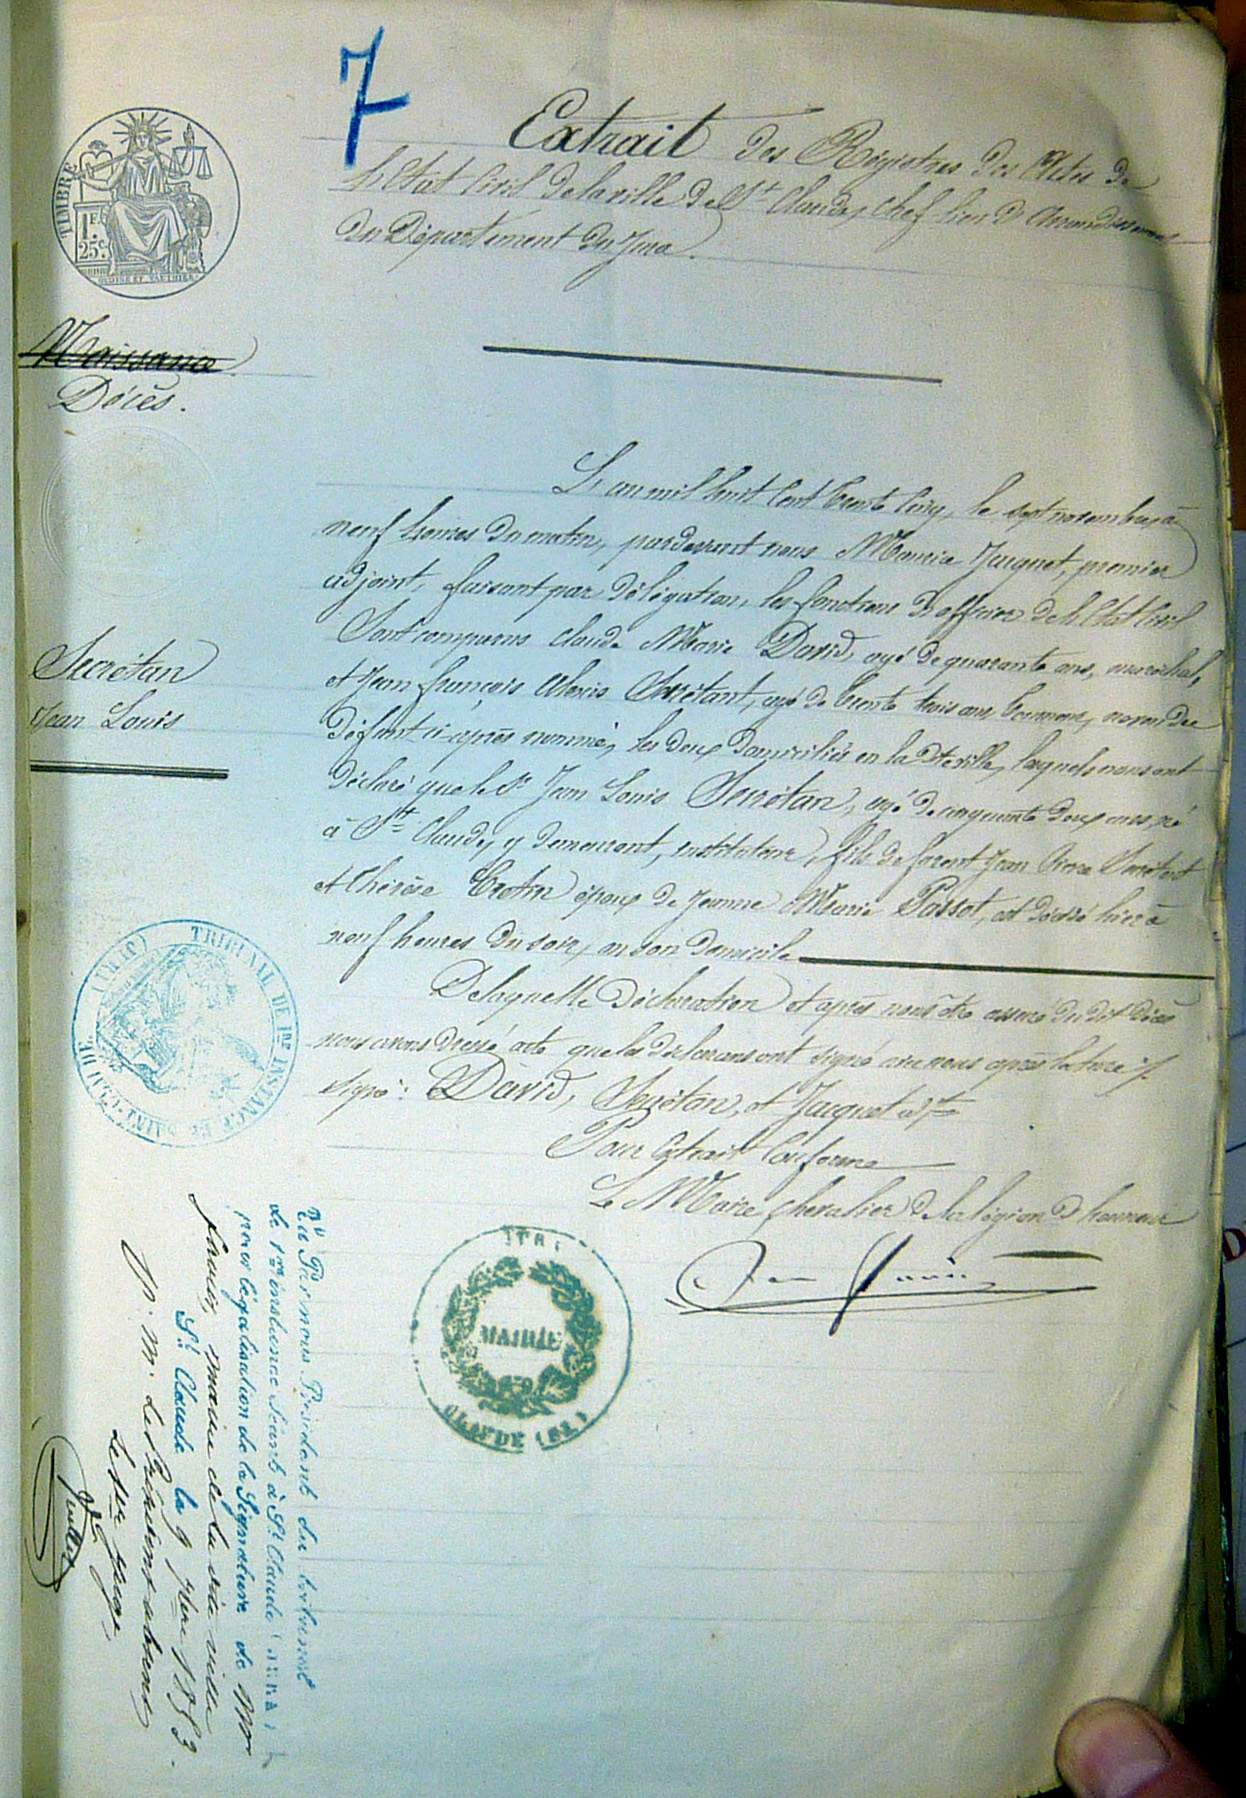 7
Extrait des Régistres des Actes de
l'Etat Civil de la ville de St Claude, chef-lieu d'Arrondissement
du Département du Jura.
TIMBRE
1 F. 25 c.
Naissance
Décès.
L'an mil huit cent trente cinq, le sept novembre, à
neuf heures du matin, pardevant nous Maurice Jacquet, premier
adjoint, faisant par délégation, les fonctions d'officier de l'Etat Civil
Sont comparus Claude Marie David, agé de quarante ans, maréchal,
et Jean françois Alexis Secrétant, agé de trente trois ans, tourneur, neveu du
défunt ci-après nommé, les deux domiciliés en la dte ville, lesquels nous ont
déclaré que le Sr Jean Louis Secrétan, agé de cinquante deux ans, né
à St Claude, y demeurant, instituteur, fils de furent Jean Pierre Secrétant
et Thérèse Crotin époux de Jeanne Marie Passot, est décédé hier à
neuf heures du soir, en son domicile
Secrétan
Jean Louis
De laquelle déclaration et après nous être assuré du dit décès
nous avons dressé acte que les déclarans ont signé avec nous après lecture
Signé: David, Secrétan, et Jacquet adjt
Pour Extrait Conforme
Le Maire chevalier de la légion d'honneur
TRIBUNAL DE 1re INSTANCE DE SAINT-CLAUDE (JURA)
MAIRIE
CLAUDE
Vu Par nous Président du tribunal
de 1re instance séant à St Claude (JURA)
pour légalisation de la Signature de Mr
maire de la dite ville
St Claude le 9 7bre 1883.
P. Mr le Président absent
Le juge